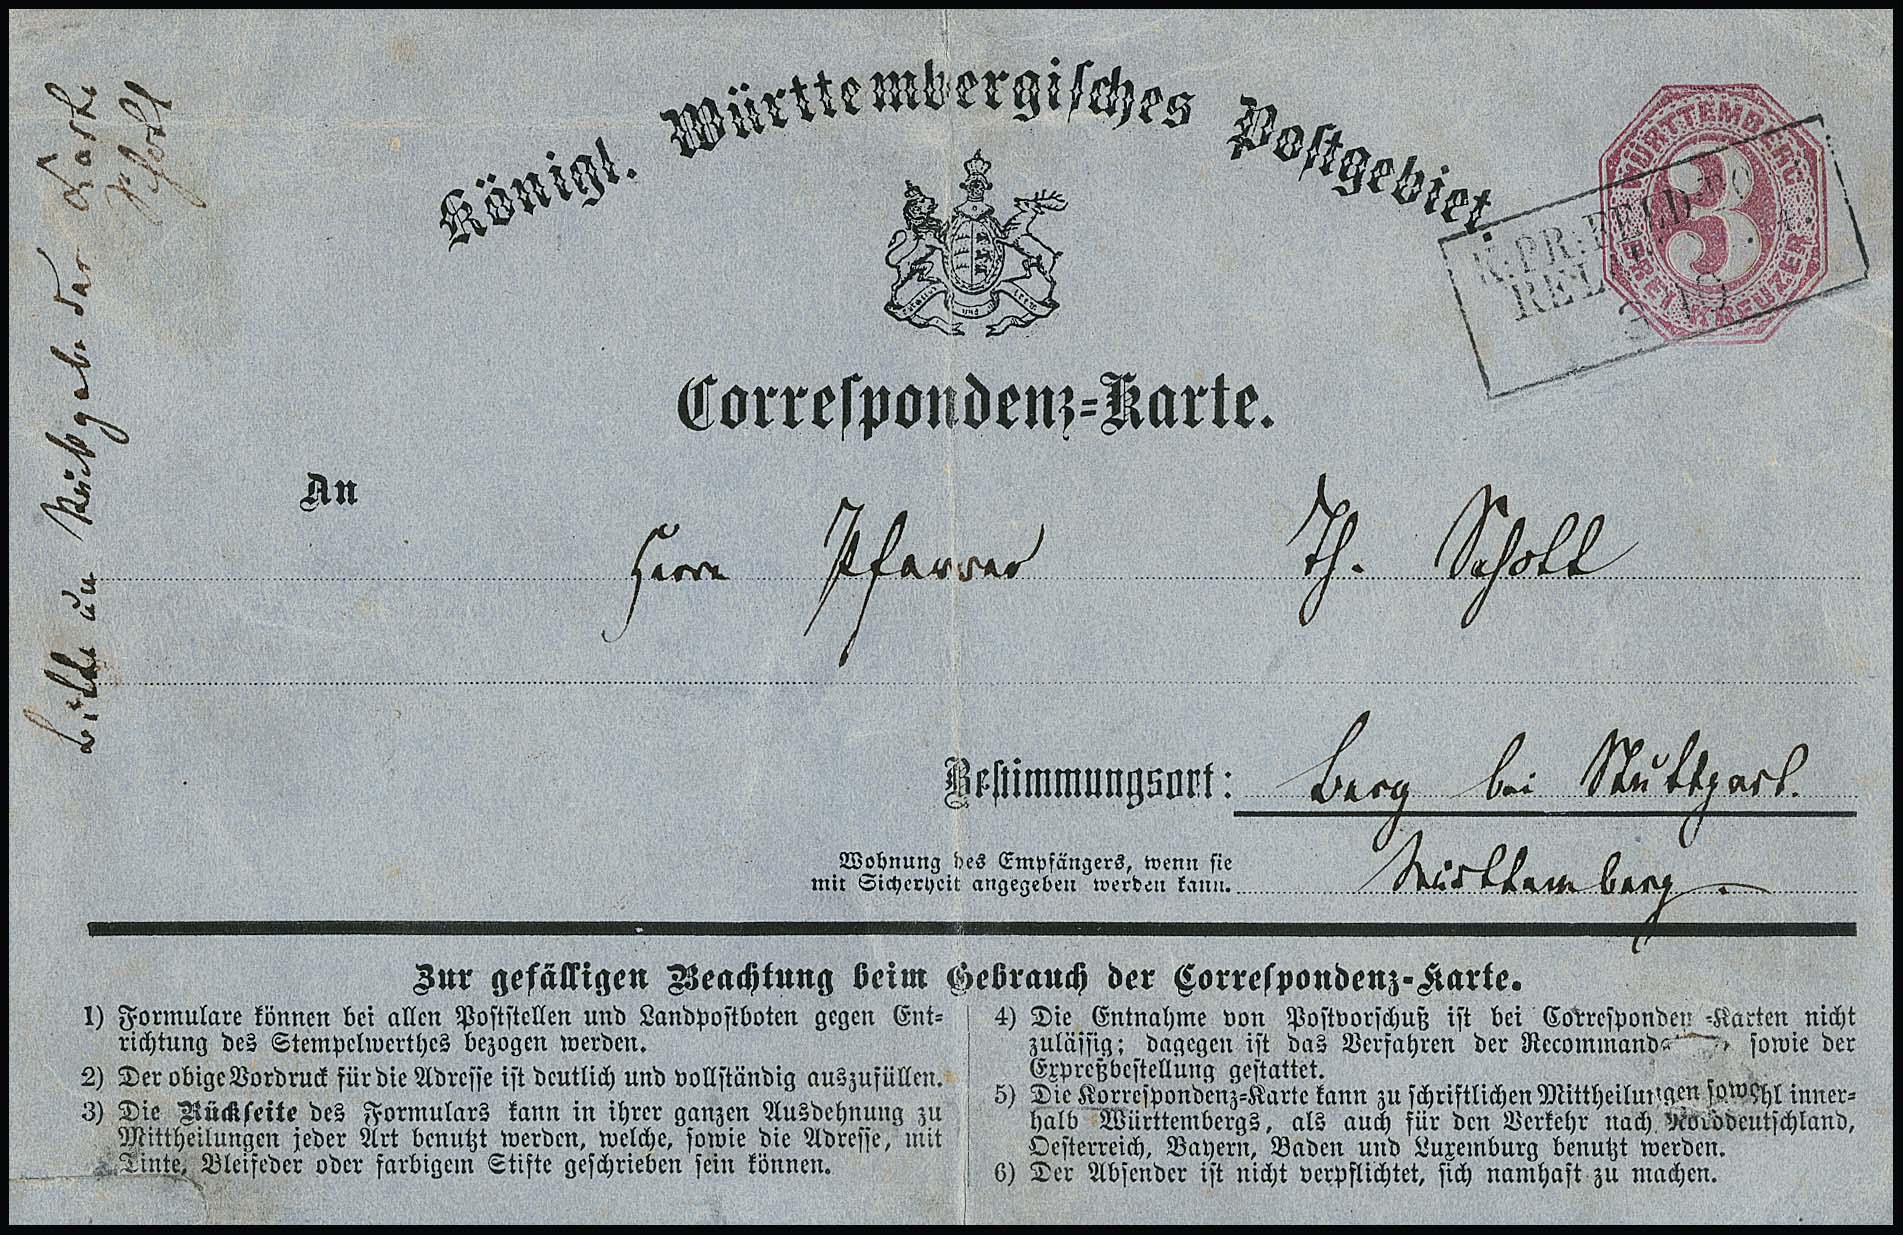 Königl. Württembergisches Postgebiet.
WÜRTTEMBERG
3
DREI KREUZER
K. PR. FELD-PO
RELAIS
Furchtlos und trew
Correspondenz-Karte.
An
Herrn Pfarrer Th. Schott
Bestimmungsort: Berg bei Stuttgart.
Wohnung des Empfängers, wenn sie
mit Sicherheit angegeben werden kann.
Württemberg.
bitte um Rückgabe der Karte
Schott
Zur gefälligen Beachtung beim Gebrauch der Correspondenz-Karte.
1) Formulare können bei allen Poststellen und Landpostboten gegen Ent-
richtung des Stempelwerthes bezogen werden.
2) Der obige Vordruck für die Adresse ist deutlich und vollständig auszufüllen.
3) Die Rückseite des Formulars kann in ihrer ganzen Ausdehnung zu
Mittheilungen jeder Art benutzt werden, welche, sowie die Adresse, mit
Tinte, Bleifeder oder farbigem Stifte geschrieben sein können.
4) Die Entnahme von Postvorschuß ist bei Corresponden -Karten nicht
zulässig; dagegen ist das Verfahren der Recommanda sowie der
Expreßbestellung gestattet.
5) Die Korrespondenz-Karte kann zu schriftlichen Mittheilungen sowohl inner-
halb Württembergs, als auch für den Verkehr nach Norddeutschland,
Oesterreich, Bayern, Baden und Luxemburg benutzt werden.
6) Der Absender ist nicht verpflichtet, sich namhaft zu machen.